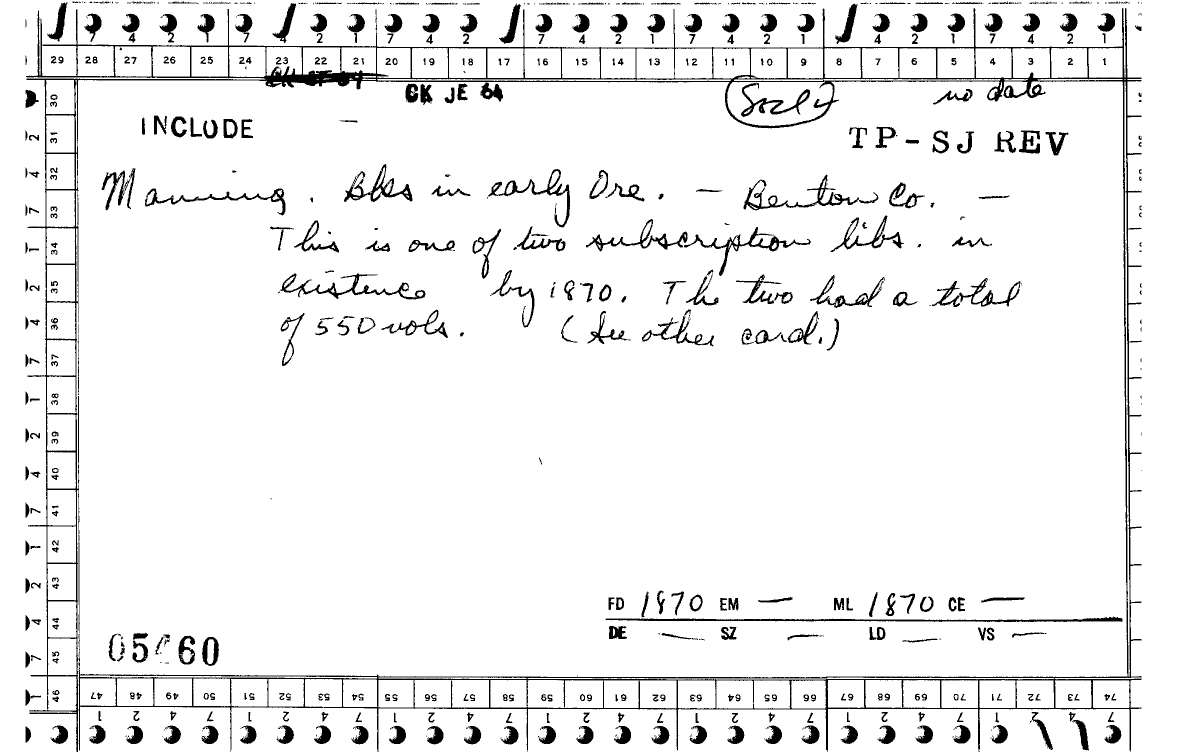 7 4 2 1 7 4 2 1 7 4 2 1 7 4 2 1 7 4 2 1 7 4 2 1 7 4 2 1
29 28 27 26 25 24 23 22 21 20 19 18 17 16 15 14 13 12 11 10 9 8 7 6 5 4 3 2 1
CK JE 64
no date
INCLUDE —
TP-SJ REV
Manning. Bks in early Ore. — Benton Co. —
This is one of two subscription libs. in
existence by 1870. The two had a total
of 550 vols. (See other card.)
FD 1870 EM — ML 1870 CE —
DE — SZ — LD — VS —
30
31
32
33
34
35
36
37
38
39
40
41
42
43
44
45
46
47 48 49 50 51 52 53 54 55 56 57 58 59 60 61 62 63 64 65 66 67 68 69 70 71 72 73 74
1 2 4 7 1 2 4 7 1 2 4 7 1 2 4 7 1 2 4 7 1 2 4 7 1 2 4 7